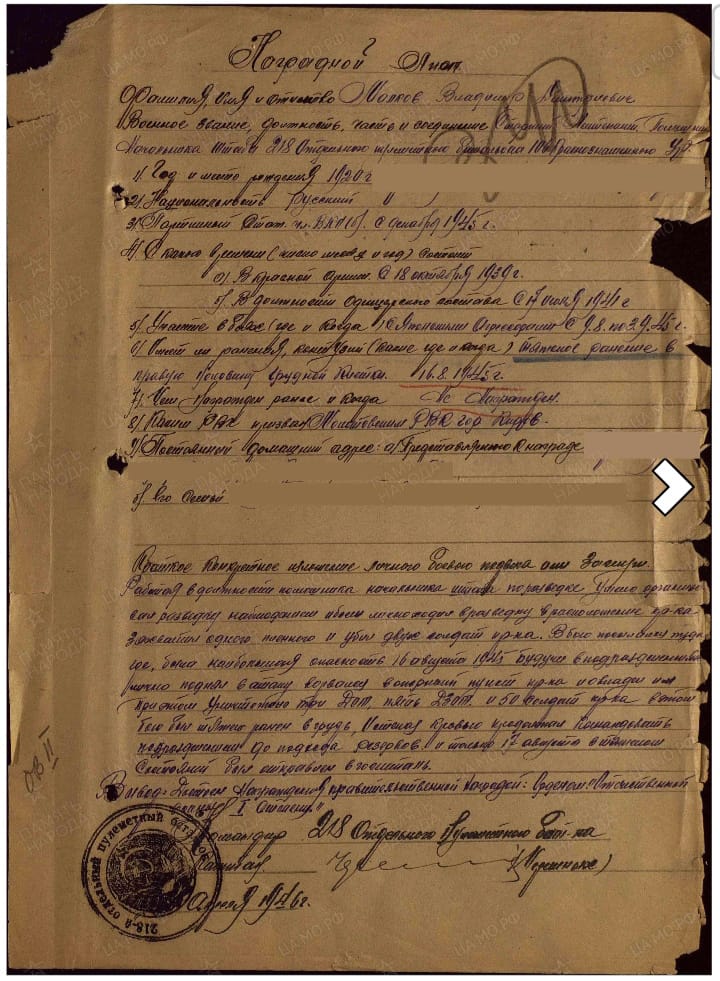 Наградной Лист
Фамилия, Имя и отчество Володимир
Военное звание, должность, часть и соединение Старший Лейтенант, Помощник
Начальника штаба 218 Отдельного пулеметного батальона 106 Краснознаменного УР
1) Год и место рождения 1920 г
2) Национальность Русский
3) Партийный Стаж чл. ВКП(б). с декабря 1945 г.
4) С какого времени (число месяц и год) состоит
а) В Красной Армии. С 18 октября 1939 г.
б) В должности офицерского состава С 17 1941 г
5) Участие в боях (где и когда) с Японскими С 9.8. по 3.9.45 г.
6) Имеет ли ранения, контузии (какие где и когда) тяжелое ранение в
правую половину грудной клетки. 16.8.1945 г.
7) Чем награжден ранее и когда Не Награжден.
8) Каким РВК призван РВК гор Киев.
9) Постоянный домашний адрес: а) Представляемого к награде
б) Его Семьи
Краткое конкретное изложение личного боевого подвига или Заслуг.
Работая в должности помощника начальника штаба по разведке, Умело организо-
вал разведку наблюдением лично ходил в разведку в расположение пр-ка
Захватил одного пленного и убил двух солдат пр-ка. В бою появлялся туда
где, была наибольшая опасность 16 августа 1945 будучи в подразделении
лично поднял в атаку ворвался в опорный пункт пр-ка и овладел им
при этом уничтожено три ДОТ, пять ДЗОТ, и 50 солдат пр-ка в этом
бою был тяжело ранен в грудь, Истекая кровью продолжал командовать
подразделением до подхода резервов, и только 17 августа в тяжелом
Состоянии был отправлен в госпиталь.
Вывод: Достоин Награждения правительственной наградой: Орденом: "Отечественной
I Степени."
Командир 218 Отдельного Пулеметного Бат-на
Капитан
Апреля 1946 г.
218-й отдельный пулеметный батальон
ОВ II
ЦАМО.РФ
ПАМЯТЬ НАРОДА